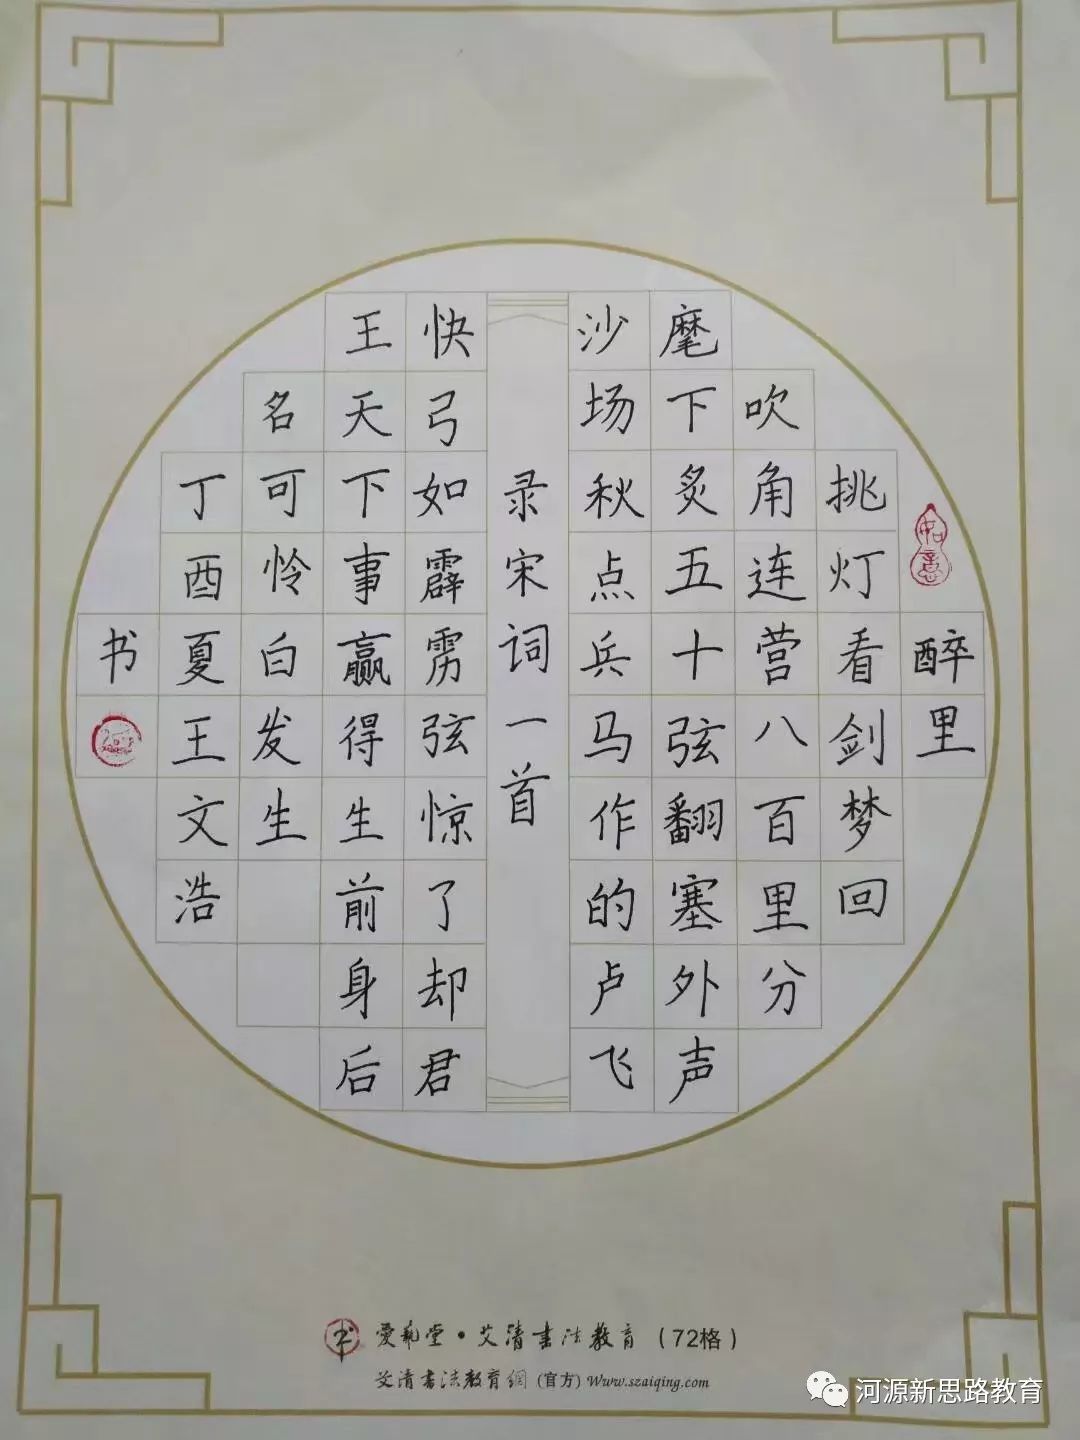 醉里
挑灯看剑梦回
吹角连营八百里分
麾下炙五十弦翻塞外声
沙场秋点兵马作的卢飞
录宋词一首
快弓如霹雳弦惊了却君
王天下事赢得生前身后
名可怜白发生
丁酉夏王文浩
书
愛藝堂·艾清书法教育（72格）
艾清书法教育網 (官方) Www.szaiqing.com
河源新思路教育